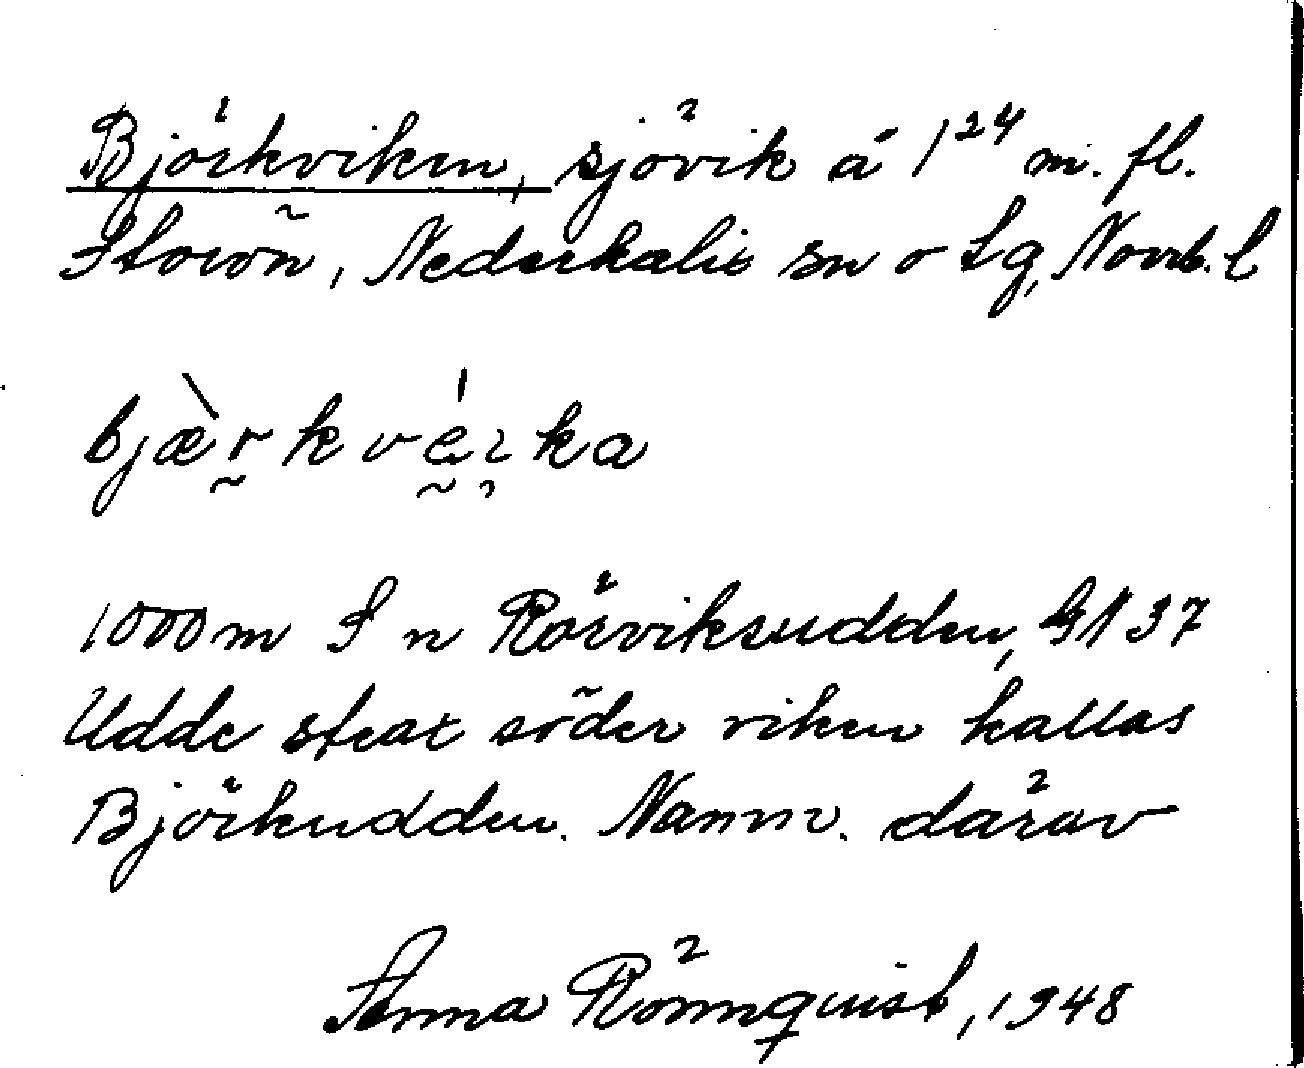 Björkviken, sjövik å 1²⁴ m. fl.
Storön, Nederkalix sn o tg, Norrb. l
bjæ̀r̰kvḛ́ɪ̨ka
1000 m S n Rörviksudden, GN 37
Udde strax söder viken kallas
Björkudden. Namn. därav
Anna Rönnquist, 1948